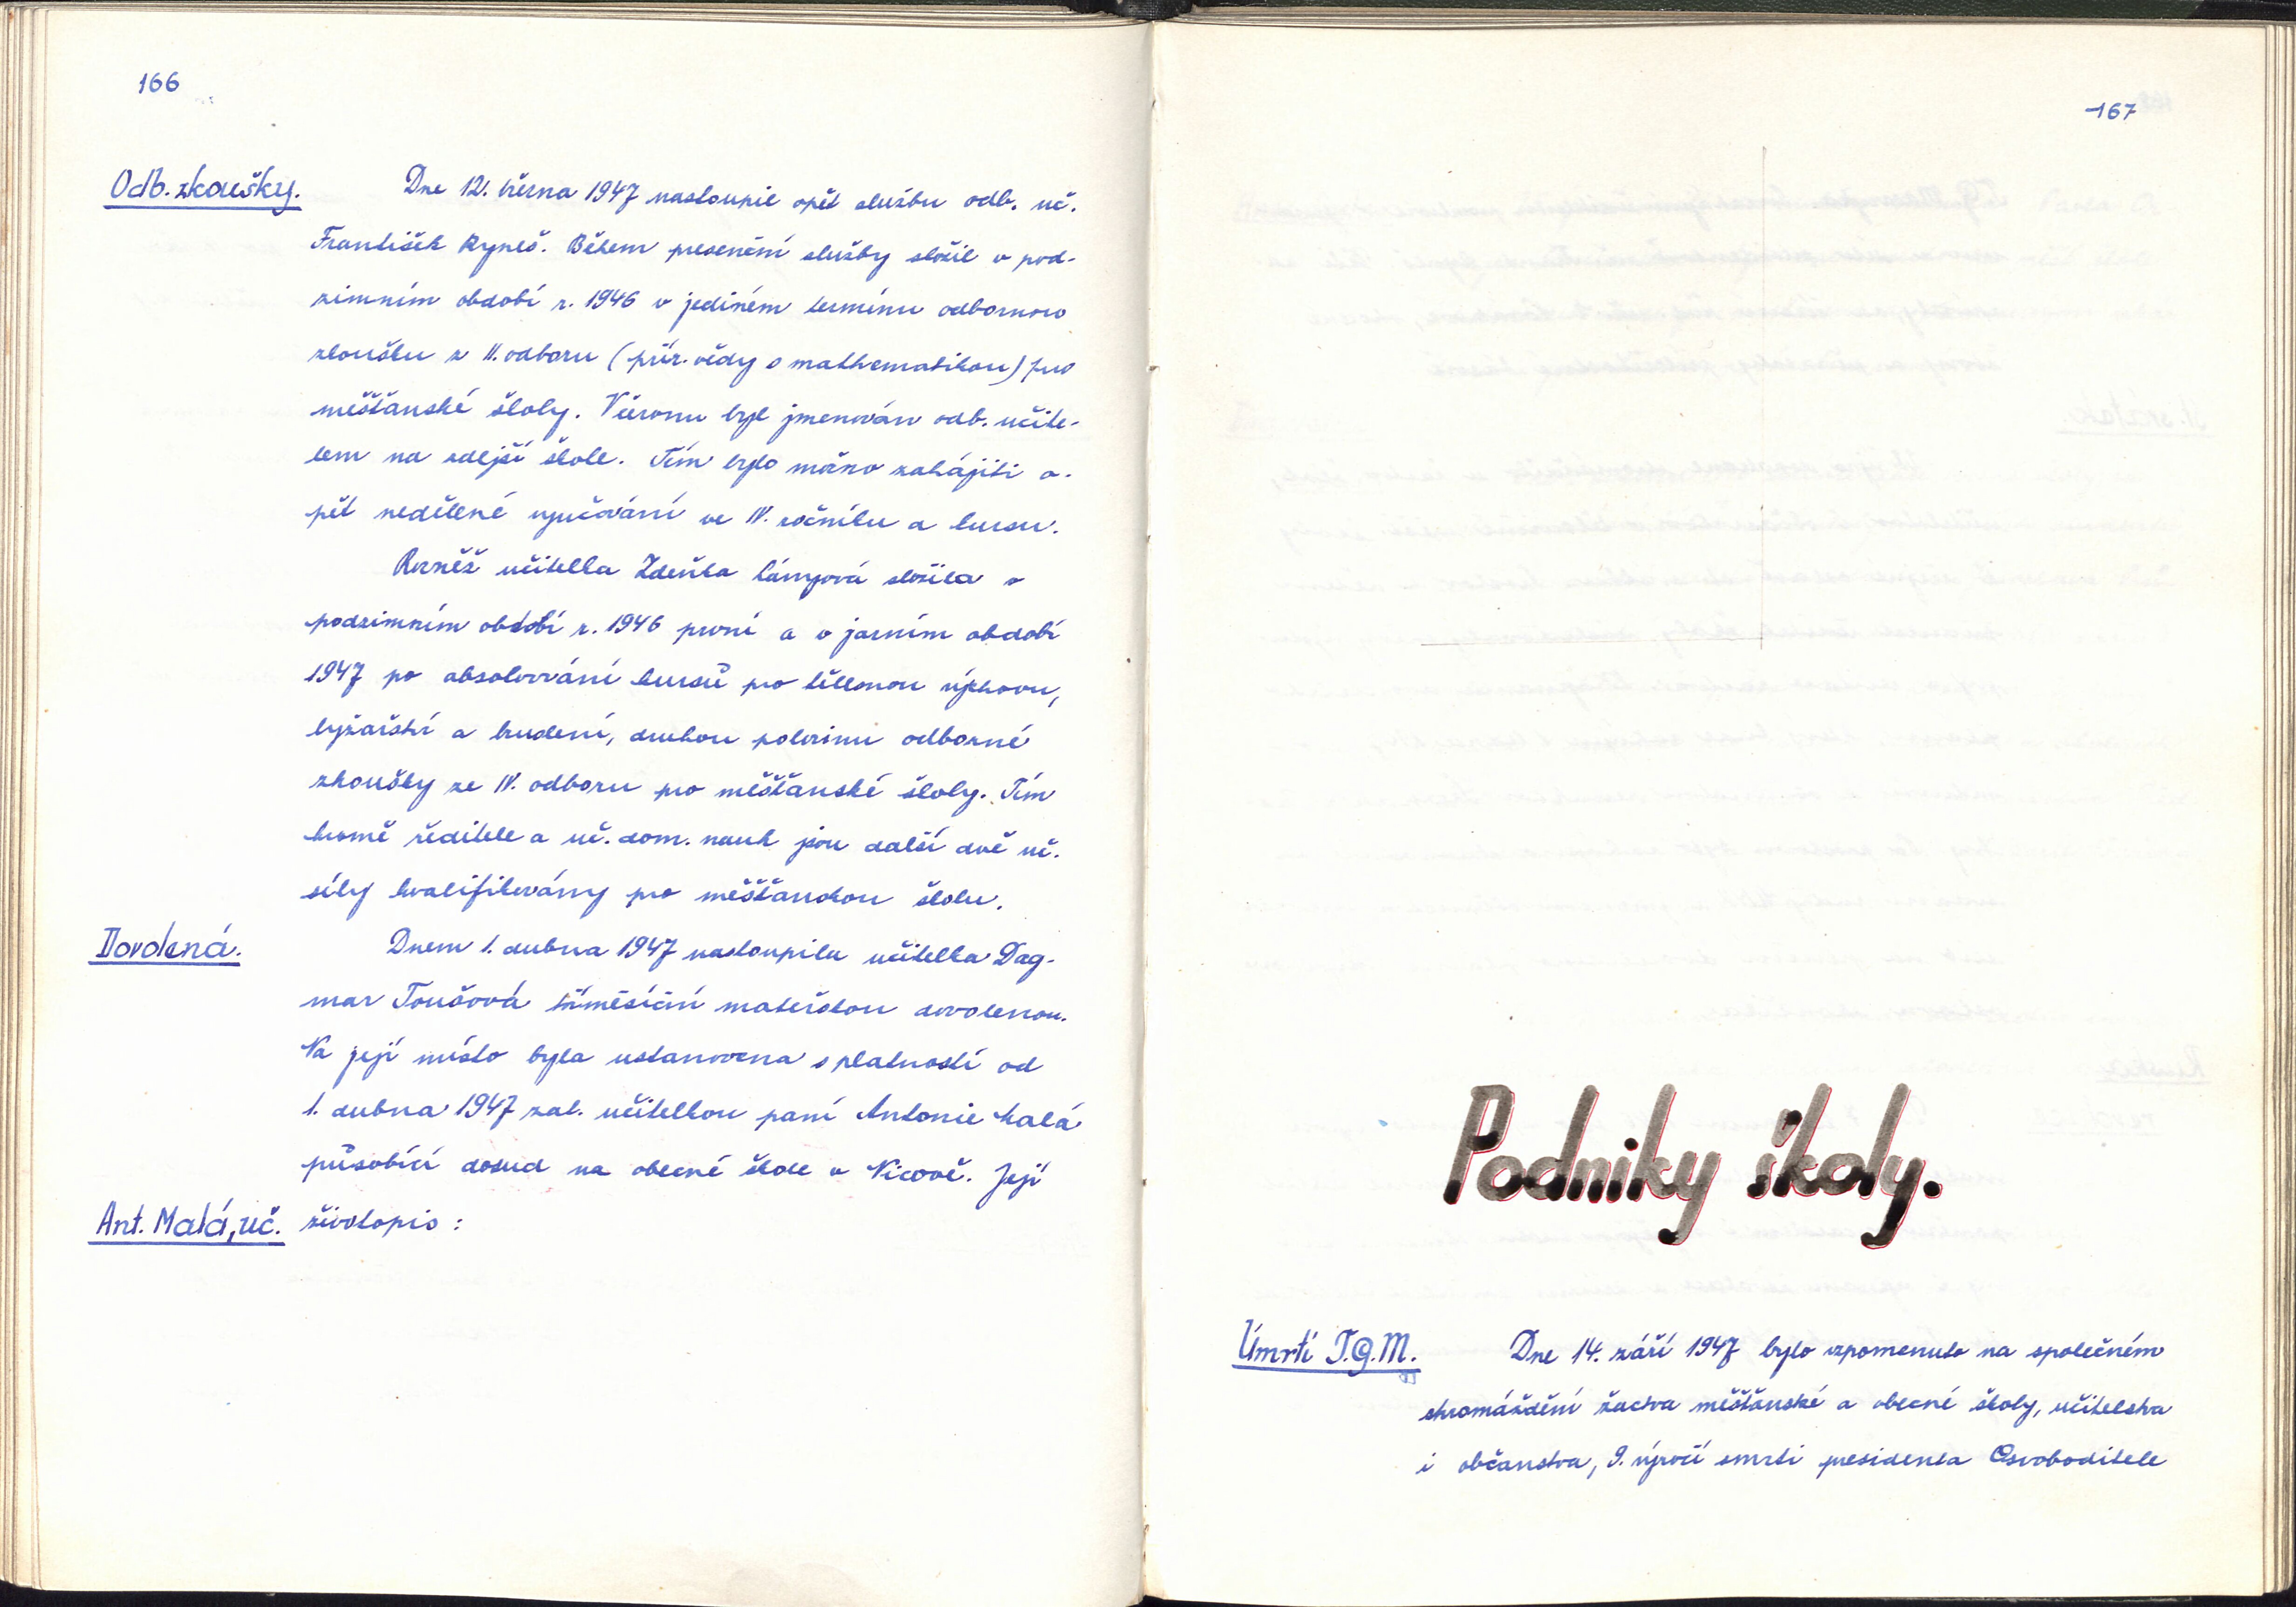 166
Odb. zkoušky.
Dne 12. března 1947 nastoupil opět službu odb. uč.
František Ryneš. Během presenční služby složil v pod-
zimním období r. 1946 v jediném termínu odbornou
zkoušku z II. odboru (přír. vědy s mathematikou) pro
měšťanské školy. V červnu byl jmenován odb. učite-
lem na zdejší škole. Tím bylo možno zahájiti o-
pět nedělené vyučování ve IV. ročníku a kursu.
Rovněž učitelka Zdeňka složila v
podzimním období r. 1946 první a v jarním období
1947 po absolvování kursů pro tělesnou výchovu,
lyžařství a bruslení, druhou polovinu odborné
zkoušky ze IV. odboru pro měšťanské školy. Tím
kromě ředitele a uč. dom. nauk jsou další dvě uč.
síly kvalifikovány pro měšťanskou školu.
Dovolená.
Dnem 1. dubna 1947 nastoupila učitelka Dag-
mar Toušová tříměsíční mateřskou dovolenou.
Na její místo byla ustanovena s platností od
1. dubna 1947 zat. učitelkou paní Antonie Malá
působící dosud na obecné škole v Nicově. Její
Ant. Malá, uč.
životopis:
167
Podniky školy.
Úmrtí T.G.M.
Dne 14. září 1947 bylo vzpomenuto na společném
shromáždění žactva měšťanské a obecné školy, učitelstva
i občanstva, 9. výročí smrti presidenta Osvoboditele